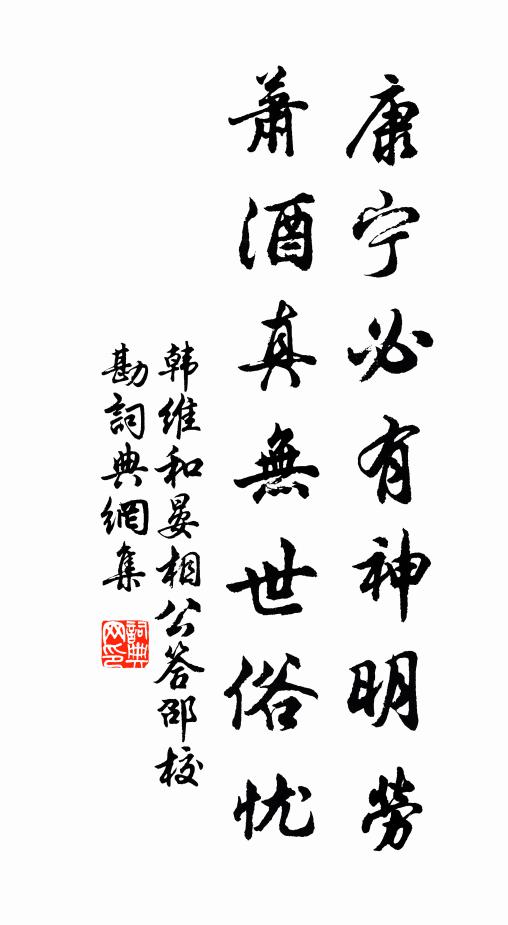 康宁必有神明勞
萧酒真無世俗忧
韩维和晏相公答邵校
勘詞典網集
詞典网印